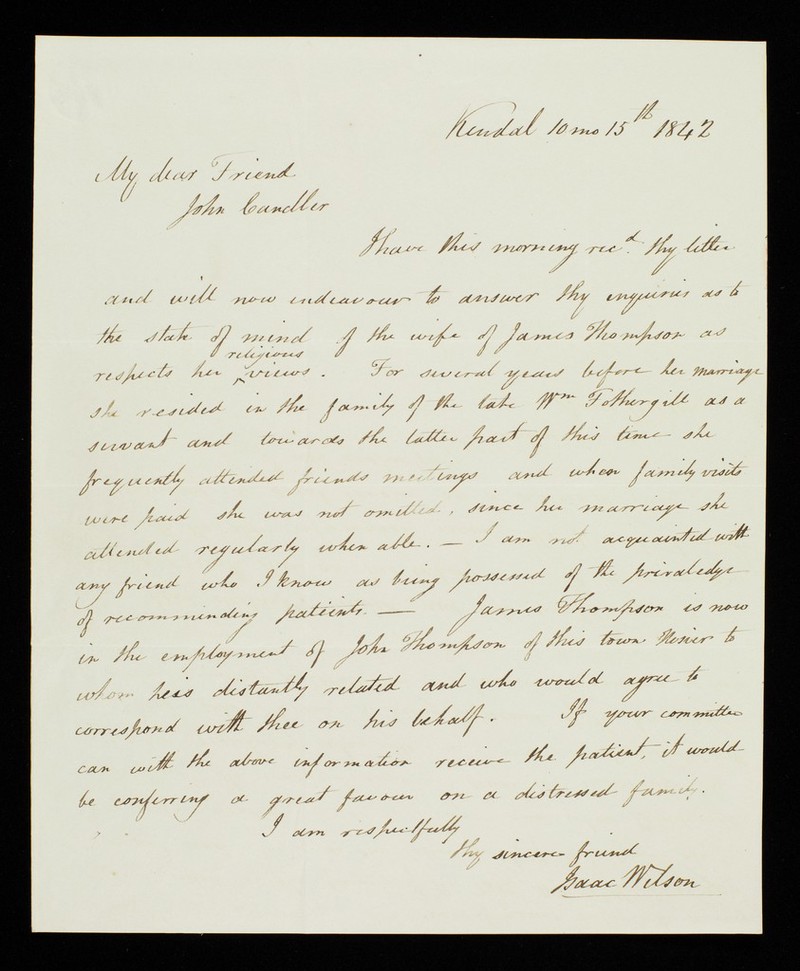 Kendal 10 mo 15th 1842
My dear Friend
John Candler
I have this morning recd. thy letter
and will now endeavour to answer thy enquiries as to
the state of mind of the wife of James Thompson as
respects her religious views. For several years before her marriage
she resided in the family of the late Wm Fothergill as a
servant and towards the latter part of this time she
frequently attended friends meetings and when family visits
were paid she was not omitted, since her marriage she
attended regularly when able. — I am not acquainted with
any friend who I know as being possessed of the priviledge
of recommending patients. — James Thompson is now
in the employment of John Thompson of this town Hosier to
whom he is distantly related and who would agree to
correspond with thee on his behalf. If your committee
can with the above information receive the patient, it would
be conferring a great favour on a distressed family.
I am respectfully
thy sincere friend
Isaac Wilson